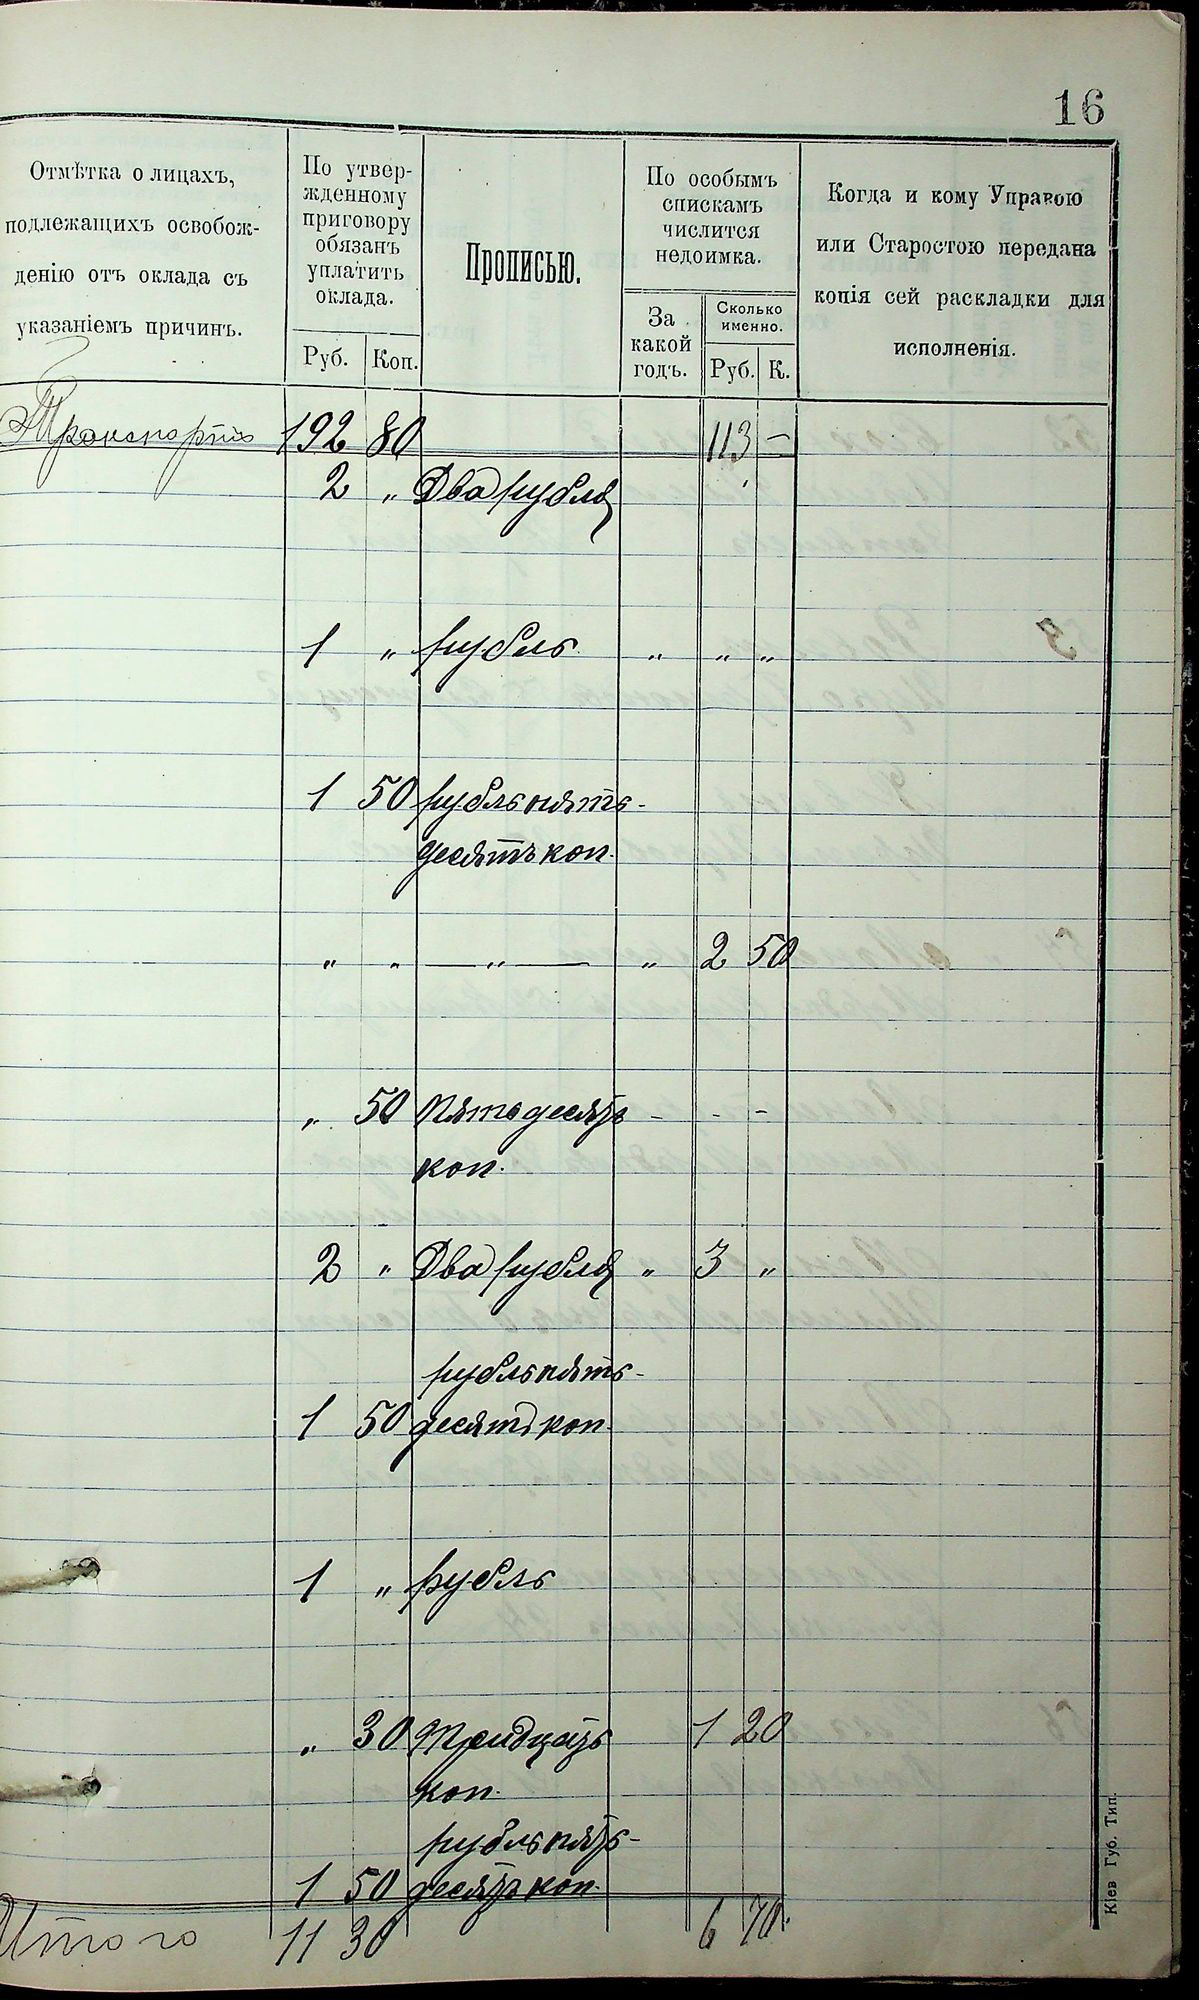 16
Отмѣтка о лицахъ,
подлежащихъ освобож-
денію отъ оклада съ
указаніемъ причинъ.
По утвер-
жденному
приговору
обязанъ
уплатить
оклада.
Руб. Коп.
Прописью.
По особымъ
спискамъ
числится
недоимка.
За
какой
годъ.
Сколько
именно.
Руб. К.
Когда и кому Управою
или Старостою передана
копія сей раскладки для
исполненія.
Транспортъ 192 80 113 —
2 " Два рубля
1 " рубль " " "
1 50 рубль пять-
десятъ коп.
" " — " — " 2 50
" 50 Пятьдесятъ - - -
коп.
2 " Два рубля " 3 "
рубль пять-
1 50 десятъ коп.
1 " рубль
" 30 Тридцать 1 20
коп.
рубль пять-
1 50 десятъ коп.
Итого 11 30 6 70.
Кіев Губ. Тип.